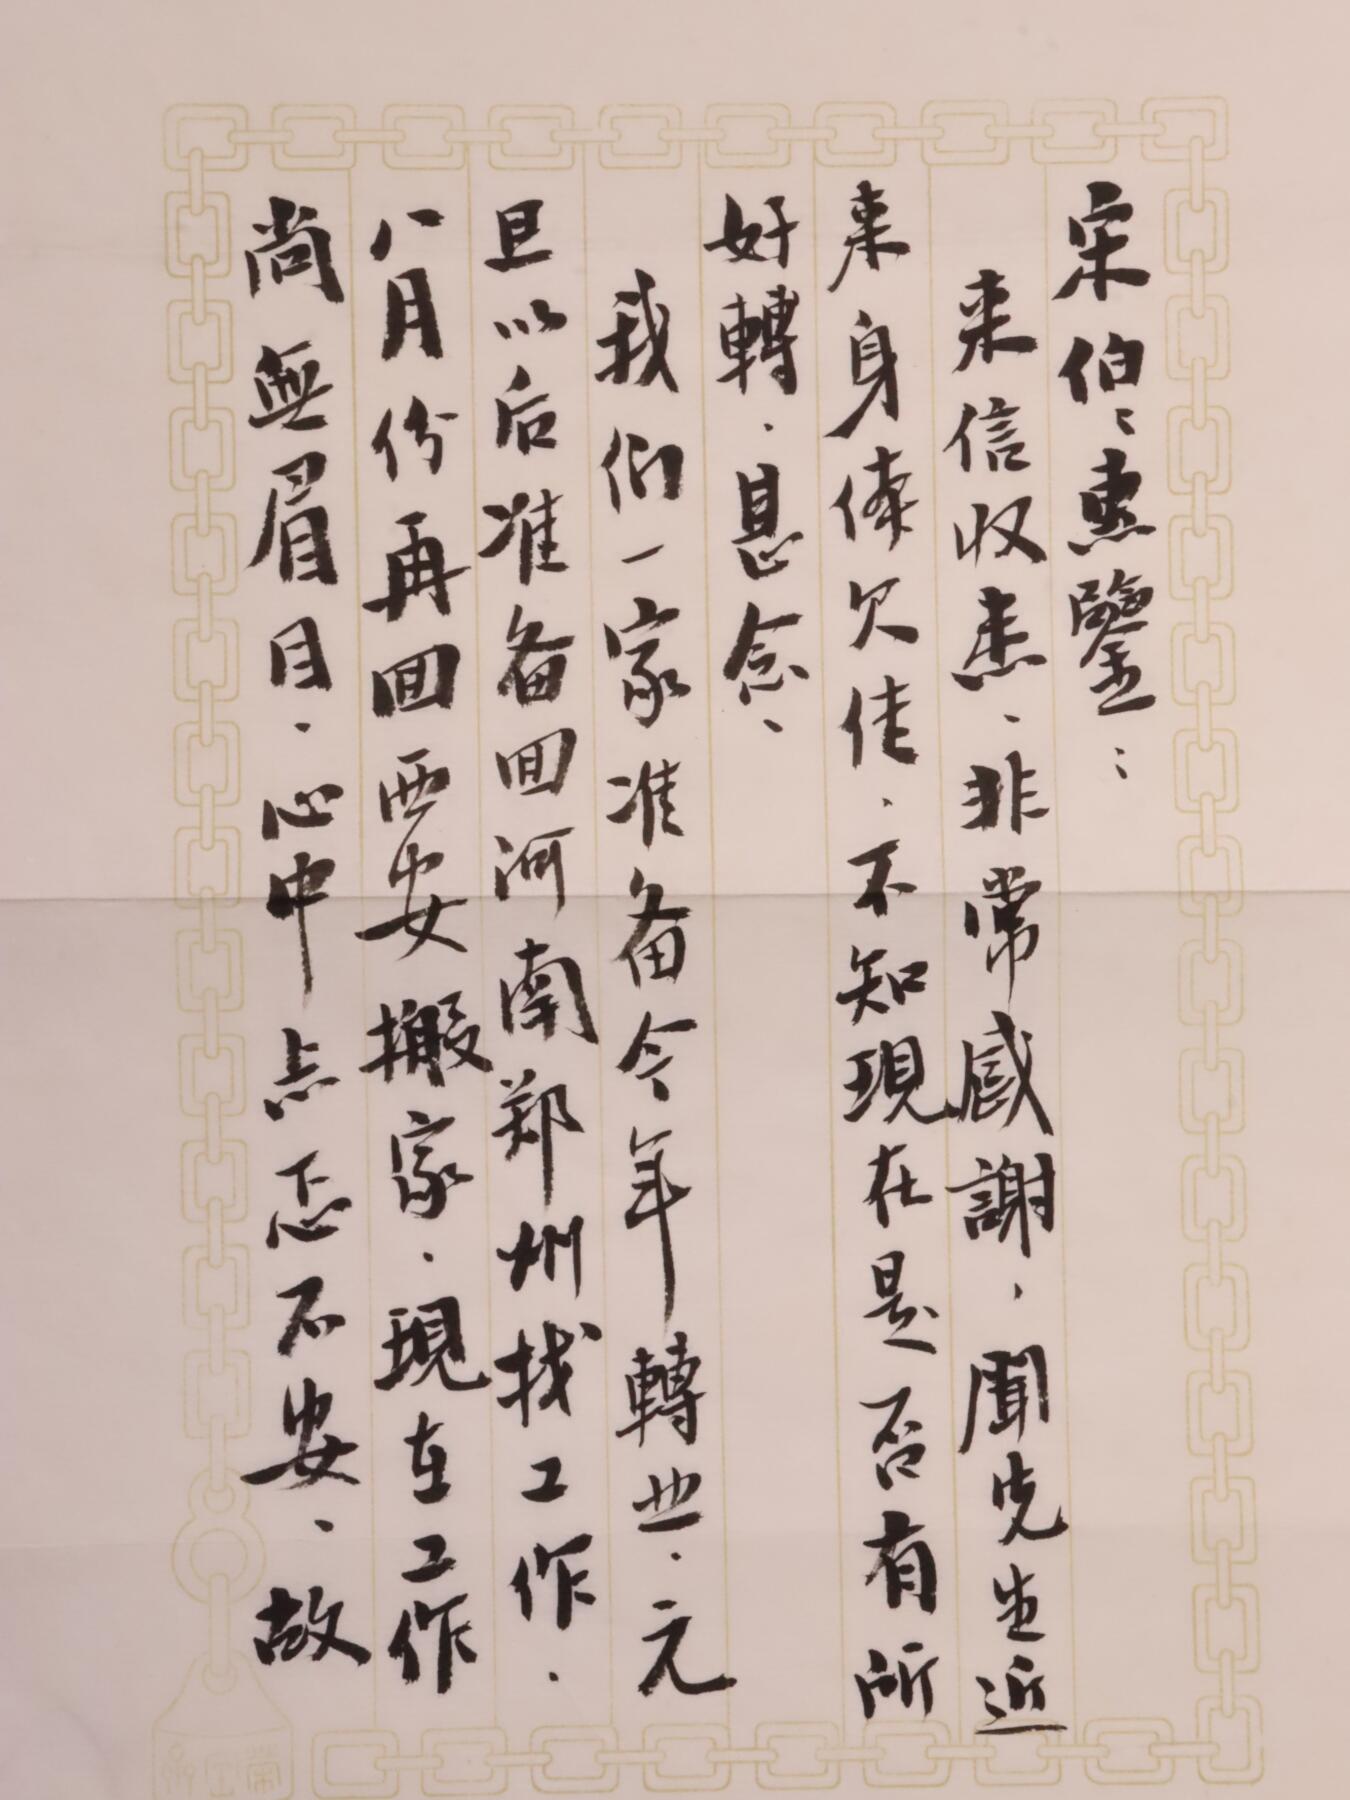 宋伯〻惠鑒：
来信收悉、非常感謝，聞先生近
来身体欠佳，不知現在是否有所
好轉，甚念、
我们一家准备今年轉业，元
旦以后准备囬河南郑州找工作，
八月份再囬西安搬家，現在工作
尚無眉目，心中忐忑不安，故